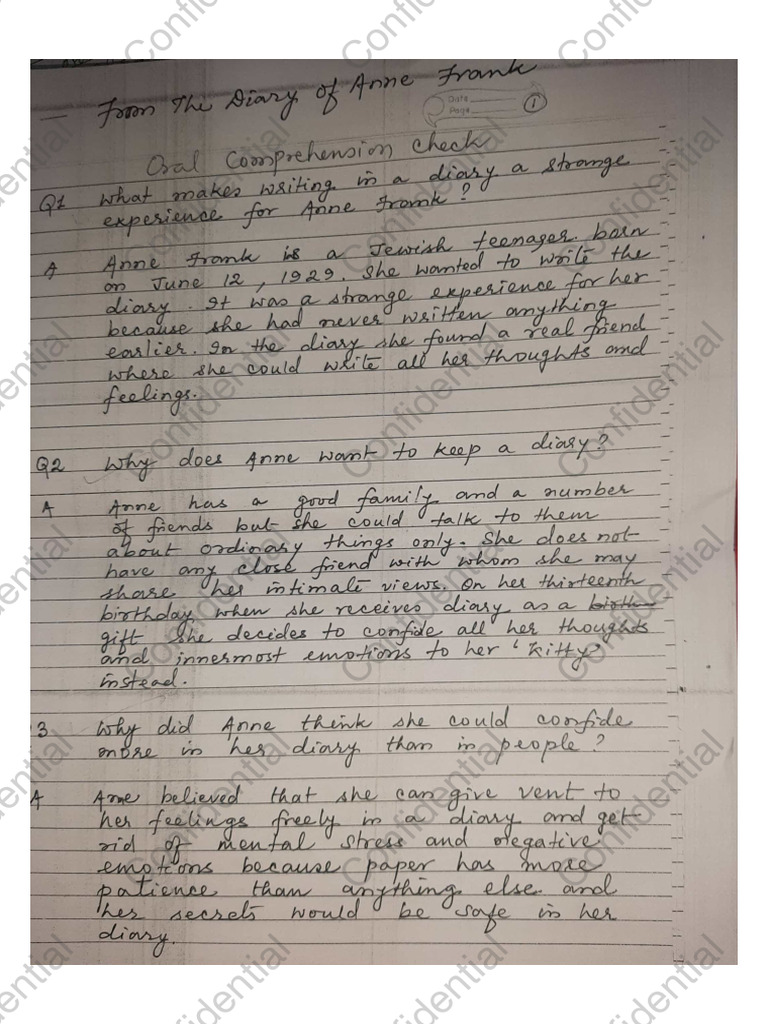 From The Diary of Anne Frank
Date
Page
1
Oral Comprehension Check
Q1 What makes writing in a diary a strange
experience for Anne Frank?
A Anne Frank is a Jewish teenager born
on June 12, 1929. She wanted to write the
diary. It was a strange experience for her
because she had never written anything
earlier. In the diary she found a real friend
where she could write all her thoughts and
feelings.
Q2 Why does Anne want to keep a diary?
A Anne has a good family and a number
of friends but she could talk to them
about ordinary things only. She does not
have any close friend with whom she may
share her intimate views. On her thirteenth
birthday when she receives diary as a birth
gift she decides to confide all her thoughts
and innermost emotions to her 'Kitty'
instead.
3 Why did Anne think she could confide
more in her diary than in people?
A Anne believed that she can give vent to
her feelings freely in a diary and get
rid of mental stress and negative
emotions because paper has more
patience than anything else and
her secrets would be safe in her
diary.
Confidential